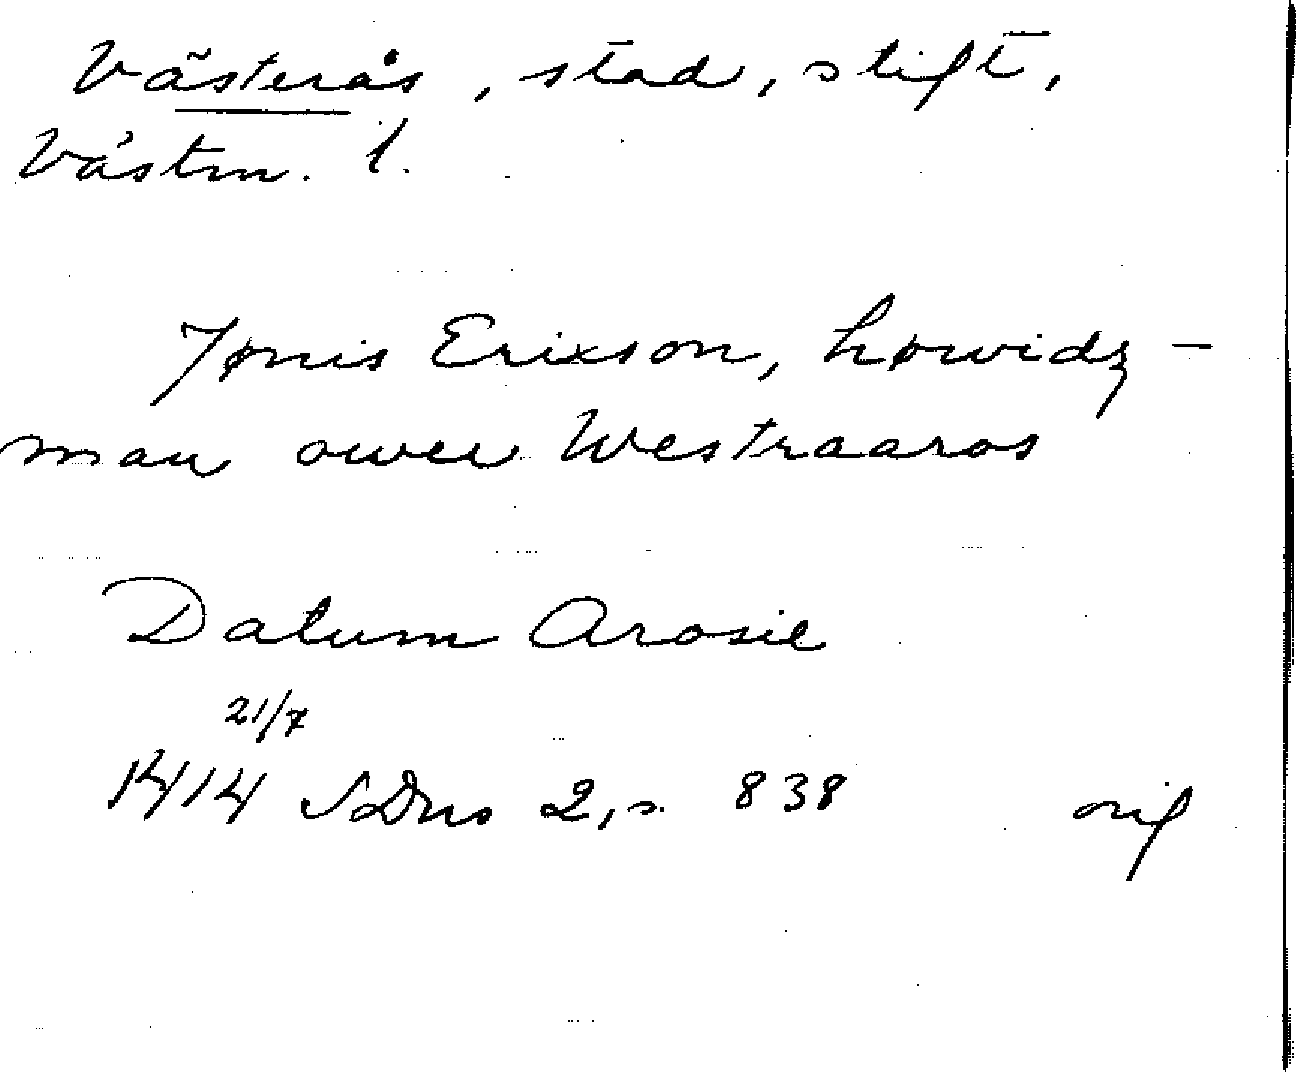 Västerås, stad, stift,
Västm. l.
Jønis Erixson, høwidz-
man ower Westraaros
Datum Arosie
21/7
1414 SDns 2, s. 838 orig